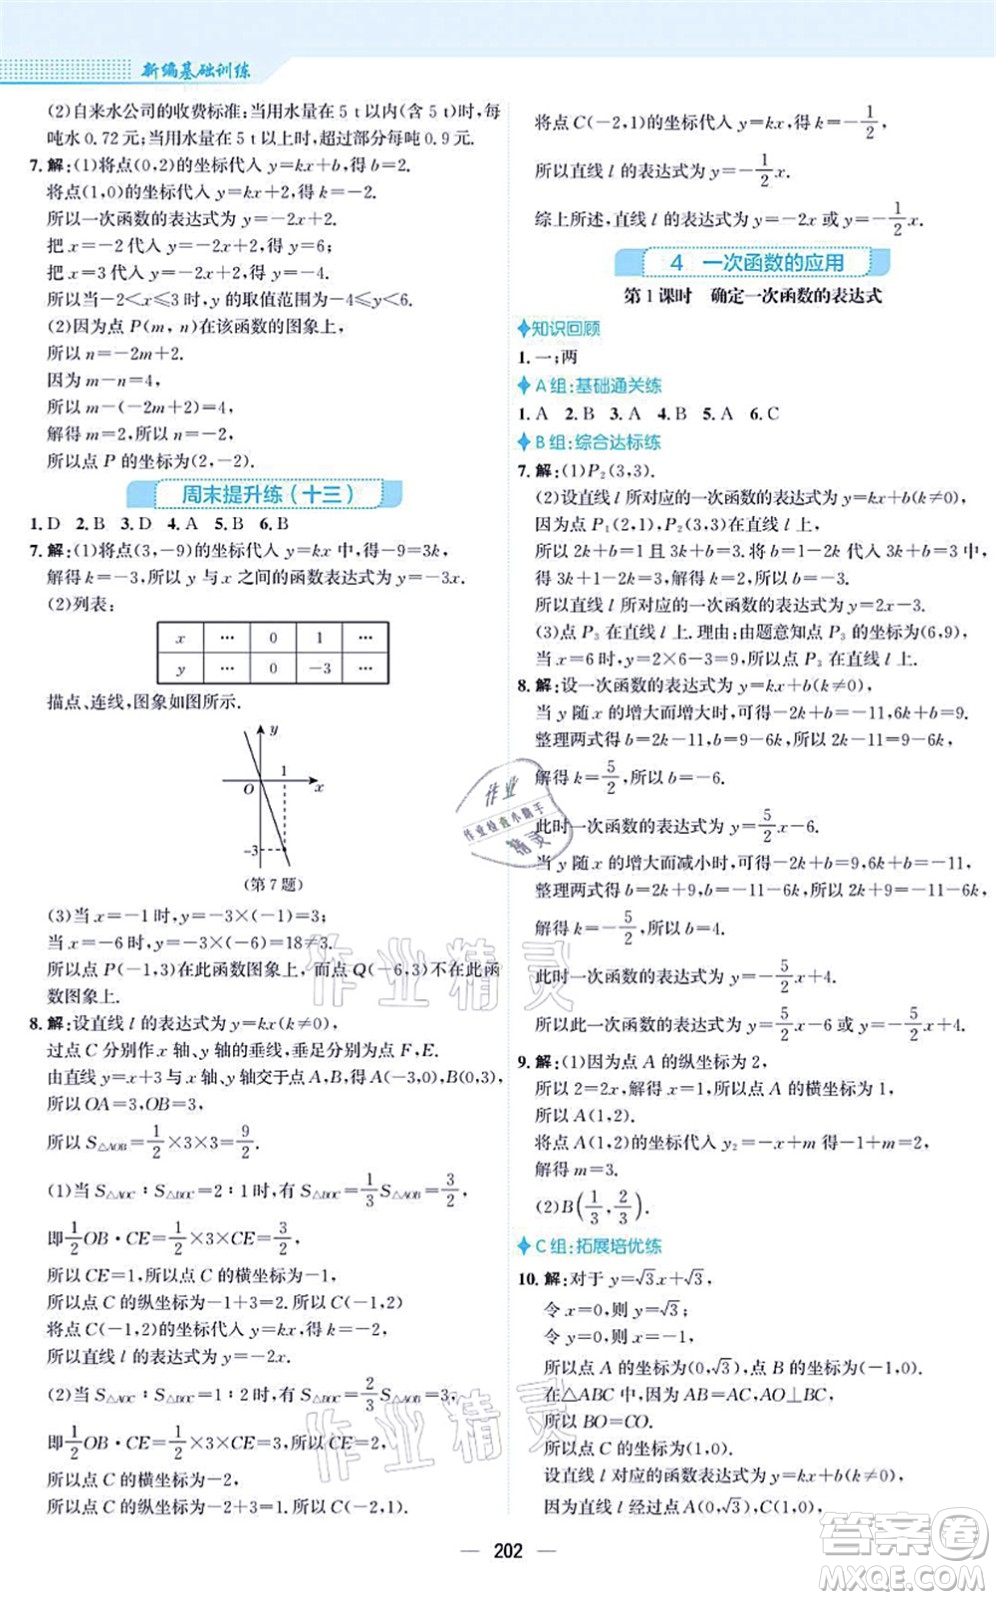 新编基础训练
(2)自来水公司的收费标准:当用水量在 5 t 以内(含 5 t)时,每
吨水 0.72 元;当用水量在 5 t 以上时,超过部分每吨 0.9 元.
7. 解:(1)将点(0,2)的坐标代入 y=kx+b,得 b=2.
将点(1,0)的坐标代入 y=kx+2,得 k=-2.
所以一次函数的表达式为 y=-2x+2.
把 x=-2 代入 y=-2x+2,得 y=6;
把 x=3 代入 y=-2x+2,得 y=-4.
所以当-2<x≤3 时,y 的取值范围为-4≤y<6.
(2)因为点 P(m, n)在该函数的图象上,
所以 n=-2m+2.
因为 m-n=4,
所以 m-(-2m+2)=4,
解得 m=2,所以 n=-2.
所以点 P 的坐标为(2,-2).
周末提升练(十三)
1. D 2. B 3. D 4. A 5. B 6. B
7. 解:(1)将点(3,-9)的坐标代入 y=kx 中,得-9=3k,
解得 k=-3,所以 y 与 x 之间的函数表达式为 y=-3x.
(2)列表:
x … 0 1 …
y … 0 -3 …
描点、连线,图象如图所示.
y
1
O x
-3
(第 7 题)
(3)当 x=-1 时,y=-3×(-1)=3;
当 x=-6 时,y=-3×(-6)=18≠3.
所以点 P(-1,3)在此函数图象上,而点 Q(-6,3)不在此函
数图象上.
8. 解:设直线 l 的表达式为 y=kx(k≠0),
过点 C 分别作 x 轴、y 轴的垂线,垂足分别为点 F,E.
由直线 y=x+3 与 x 轴、y 轴交于点 A,B,得 A(-3,0),B(0,3),
所以 OA=3,OB=3,
所以 S△AOB=1/2×3×3=9/2.
(1)当 S△AOC:S△BOC=2:1 时,有 S△BOC=1/3S△AOB=3/2,
即1/2OB·CE=1/2×3×CE=3/2,
所以 CE=1,所以点 C 的横坐标为-1,
所以点 C 的纵坐标为-1+3=2.所以 C(-1,2)
将点 C(-1,2)的坐标代入 y=kx,得 k=-2,
所以直线 l 的表达式为 y=-2x.
(2)当 S△AOC:S△BOC=1:2 时,有 S△BOC=2/3S△AOB=3,
即1/2OB·CE=1/2×3×CE=3,所以 CE=2.
所以点 C 的横坐标为-2,
所以点 C 的纵坐标为-2+3=1.所以 C(-2,1).
将点 C(-2,1)的坐标代入 y=kx,得 k=-1/2,
所以直线 l 的表达式为 y=-1/2x.
综上所述,直线 l 的表达式为 y=-2x 或 y=-1/2x.
4 一次函数的应用
第 1 课时 确定一次函数的表达式
知识回顾
1. 一;两
A 组:基础通关练
1. A 2. B 3. A 4. B 5. A 6. C
B 组:综合达标练
7. 解:(1)P₂(3,3).
(2)设直线 l 所对应的一次函数的表达式为 y=kx+b(k≠0),
因为点 P₁(2,1),P₂(3,3)在直线 l 上,
所以 2k+b=1 且 3k+b=3.将两式整理,得 b=1-2k,代入
得 3k+1-2k=3.解得 k=2.所以 b=-3.
所以直线 l 所对应的一次函数的表达式为 y=2x-3.
(3)点 P₃ 在直线 l 上.理由:由题意知点 P₃ 的坐标为(6,9),
当 x=6 时,y=2×6-3=9,所以点 P₃ 在直线 l 上.
8. 解:设一次函数的表达式为 y=kx+b(k≠0),
当 y 随 x 的增大而增大时,可得-2k+b=-11,6k+b=9.
整理两式得 b=2k-11,b=9-6k,所以 2k-11=9-6k,
解得 k=5/2,所以 b=-6.
此时一次函数的表达式为 y=5/2x-6.
当 y 随 x 的增大而减小时,可得-2k+b=9,6k+b=-11.
整理两式得 b=2k+9,b=-6k-11,所以 2k+9=-6k-11,
解得 k=-5/2,所以 b=4.
此时一次函数的表达式为 y=-5/2x+4.
所以此一次函数的表达式为 y=5/2x-6 或 y=-5/2x+4.
9. 解:(1)因为点 A 的纵坐标为 2,
所以 2=2x,解得 x=1,所以点 A 的横坐标为 1.
所以 A(1,2).
将点 A(1,2)的坐标代入 y₂=-x+m 得-1+m=2,
解得 m=3.
(2)B(1/3,2/3)
C 组:拓展培优练
10. 解:对于 y=√3x+√3,
令 x=0,则 y=√3;
令 y=0,则 x=-1,
所以点 A 的坐标为(0,√3),点 B 的坐标为(-1,0).
在△ABC 中,因为 AB=AC,AO⊥BC,
所以 BO=CO.
所以点 C 的坐标为(1,0).
设直线 l 对应的函数表达式为 y=kx+b(k≠0),
因为直线 l 经过点 A(0,√3),C(1,0),
202
作业
作业检查小助手
精灵
作业精灵
作业精灵
答案圈
MXQE.COM